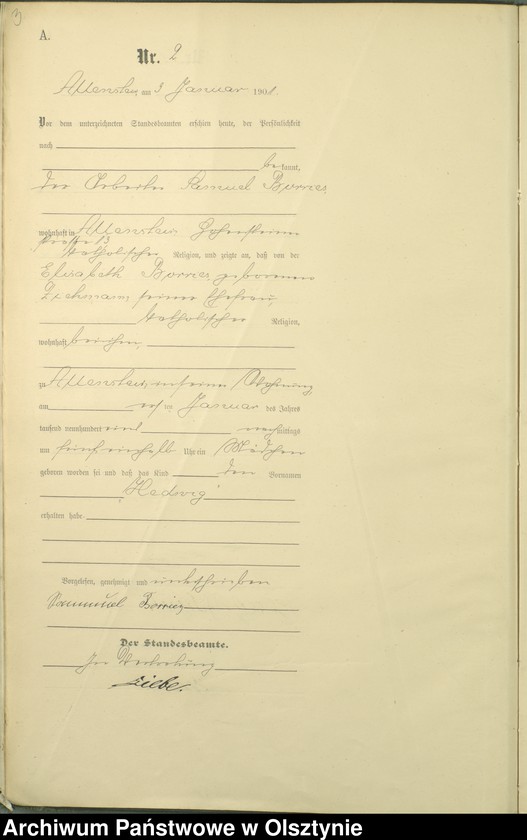 A.
Nr. 2
Allenstein am 3 Januar 1901.
Vor dem unterzeichneten Standesbeamten erschien heute, der Persönlichkeit
nach
be kannt,
der Arbeiter Samuel Borries
wohnhaft in Allenstein Hohensteiner
straße 13
katholischer Religion, und zeigte an, daß von der
Elisabeth Borries geborenen
seiner Ehefrau,
katholischer Religion,
wohnhaft bei ihm,
zu Allenstein, in seiner Wohnung
am ersten Januar des Jahres
tausend neunhundert eins nachmittags
um fünf einhalb Uhr ein Mädchen
geboren worden sei und daß das Kind den Vornamen
Hedwig
erhalten habe.
Vorgelesen, genehmigt und unterschrieben
Borries
Der Standesbeamte.
In Vertretung
Liebe.
Archiwum Państwowe w Olsztynie